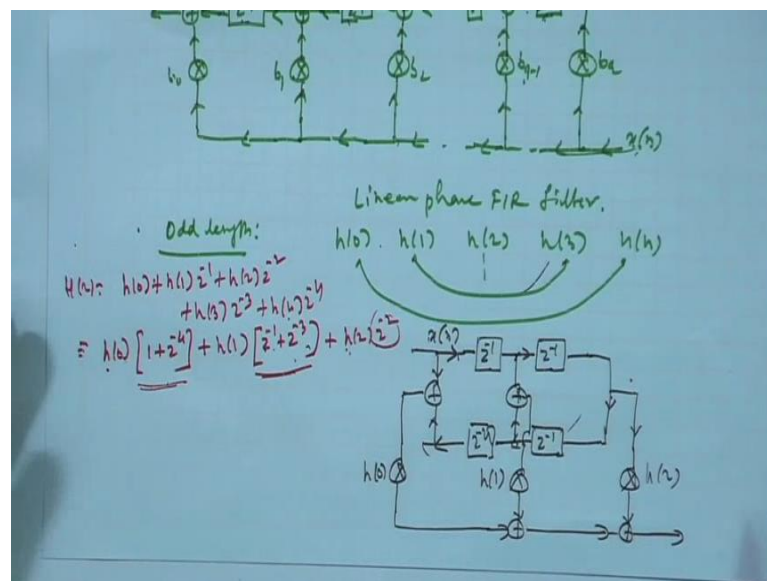 z⁻¹ z⁻¹
b₀ b₁ b₂ b_{q-1} b_q
x(n)
Linear phase FIR filter.
Odd length:
h(0) h(1) h(2) h(3) h(4)
H(z)= h(0)+h(1)z⁻¹+h(2)z⁻²
+h(3)z⁻³+h(4)z⁻⁴
= h(0)[1+z⁻⁴]+h(1)[z⁻¹+z⁻³]+h(2)z⁻²
x(n)
z⁻¹ z⁻¹
+ +
z⁻¹ z⁻¹
h(0) h(1) h(2)
+ +